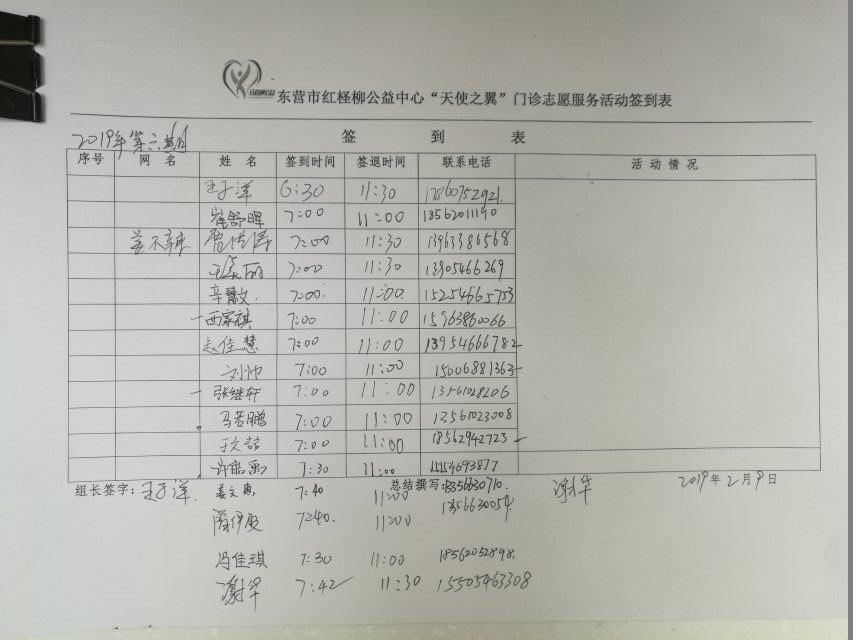 东营市红柽柳公益中心“天使之翼”门诊志愿服务活动签到表
2019年第六期
签 到 表
序号 网 名 姓 名 签到时间 签退时间 联系电话 活 动 情 况
王子洋 6:30 11:30 17860752921
崔舒晖 7:00 11:00 18562011190
姜不辣 曹洪涛 7:00 11:30 13963386568
王美丽 7:00 11:30 13905466269
辛慧文 7:00 11:00 15254665753
西家祺 7:00 11:00 15963860066
赵佳慧 7:00 11:00 13954666782
刘帅 7:00 11:00 15006881363
张继轩 7:00 11:00 13561028206
马若鹏 7:00 11:00 13561023008
于文喆 7:00 11:00 18562942723
许皓禹 7:30 11:00 15554693877
组长签字：王子洋 姜文惠 7:40 11:00 总结撰写：谢华 2019年2月9日
7:40 11:00 13356630054
冯佳琪 7:30 11:00 18562052898
谢华 7:42 11:30 15505463308